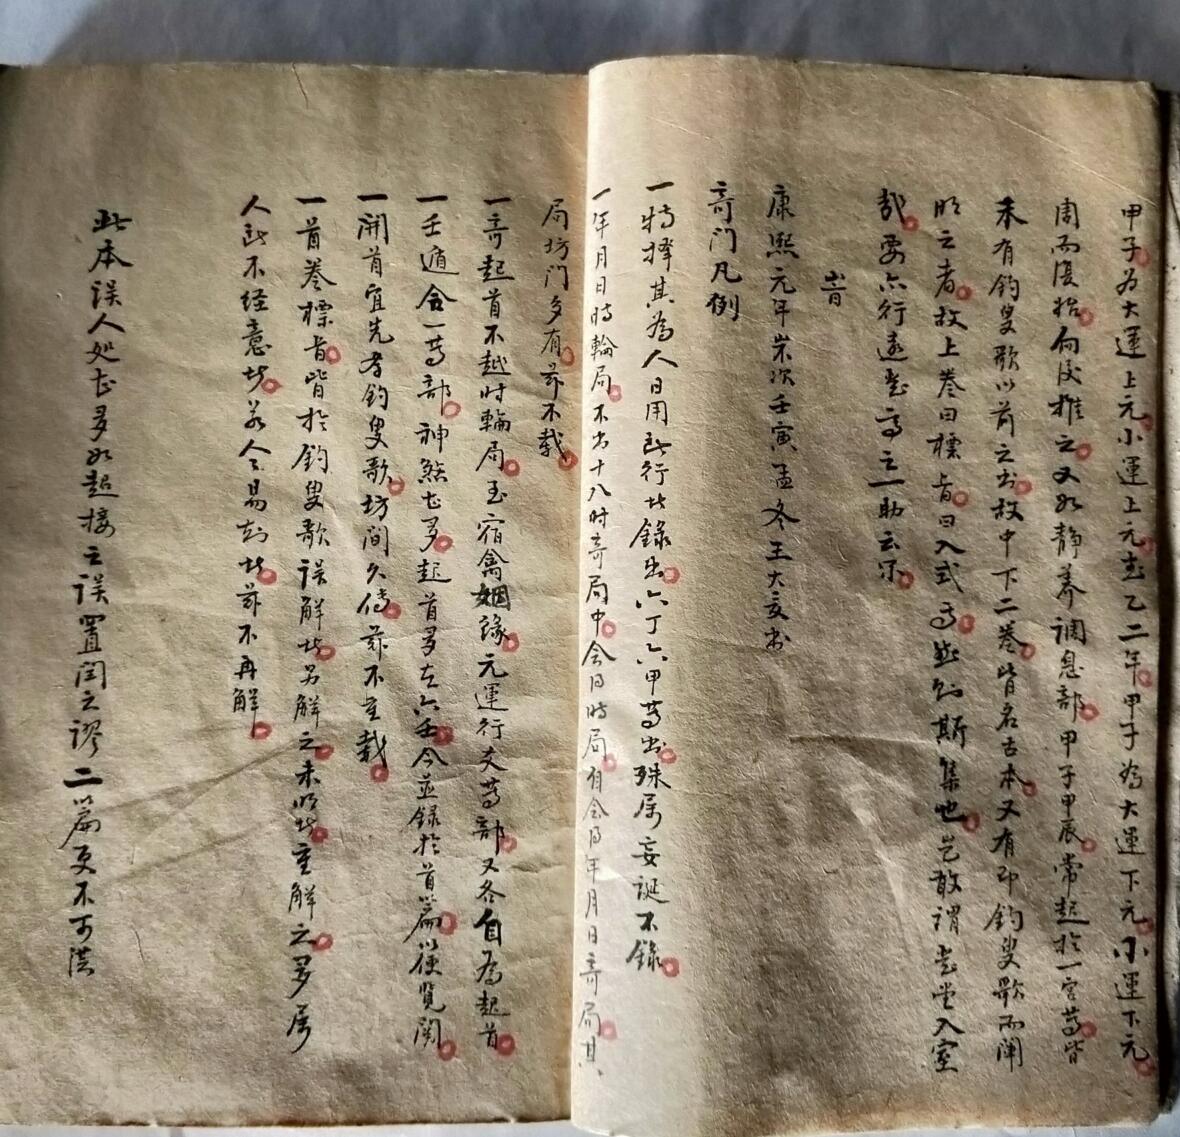 甲子为大運上元小運上元起乙二年甲子為大運下元小運下元
周而復始向後推之又如静养調息部甲子甲辰常起於一宫䓁皆
未有钓叟歌以前之书故中下二卷皆名古本又有即钓叟歌而闡
明之者故上卷曰標旨曰入式
斯集也岂敢謂登堂入室
哉要亦行遠登高之一助云尔
旹
康熙元年岁次壬寅孟冬王大亥书
竒门凡例
一特擇其為人日用行者錄出六丁六甲䓁出殊属妄誕不錄
一年月日時輪局不出十八时竒局中今日时局有今年月日竒局其
局坊门多有兹不载
一竒起首不越时輪局至宿禽姻緣元運行支䓁部又各自為起首
一壬遁合一䓁部神煞甚多起首多在六壬今並録於首篇以便覧閱
一開首宜先考钓叟歌坊間久傳兹不重载
一首卷標旨皆於钓叟歌误解者另解之未明者重解之多属
人不经意者若人人易知者兹不再解
此本误人处甚多如超接之误置闰之谬二篇更不可法